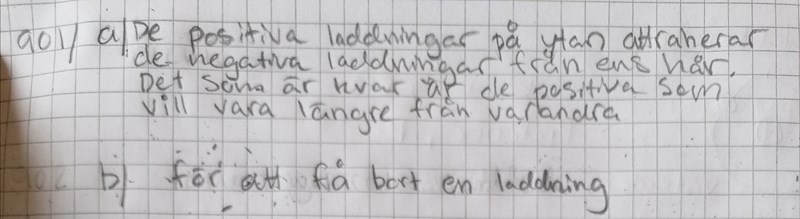 901/ a/ De positiva laddningar på ytan attraherar
de negativa laddningar från ens hår.
Det som är kvar är de positiva som
vill vara längre från varandra
b) för att få bort en laddning